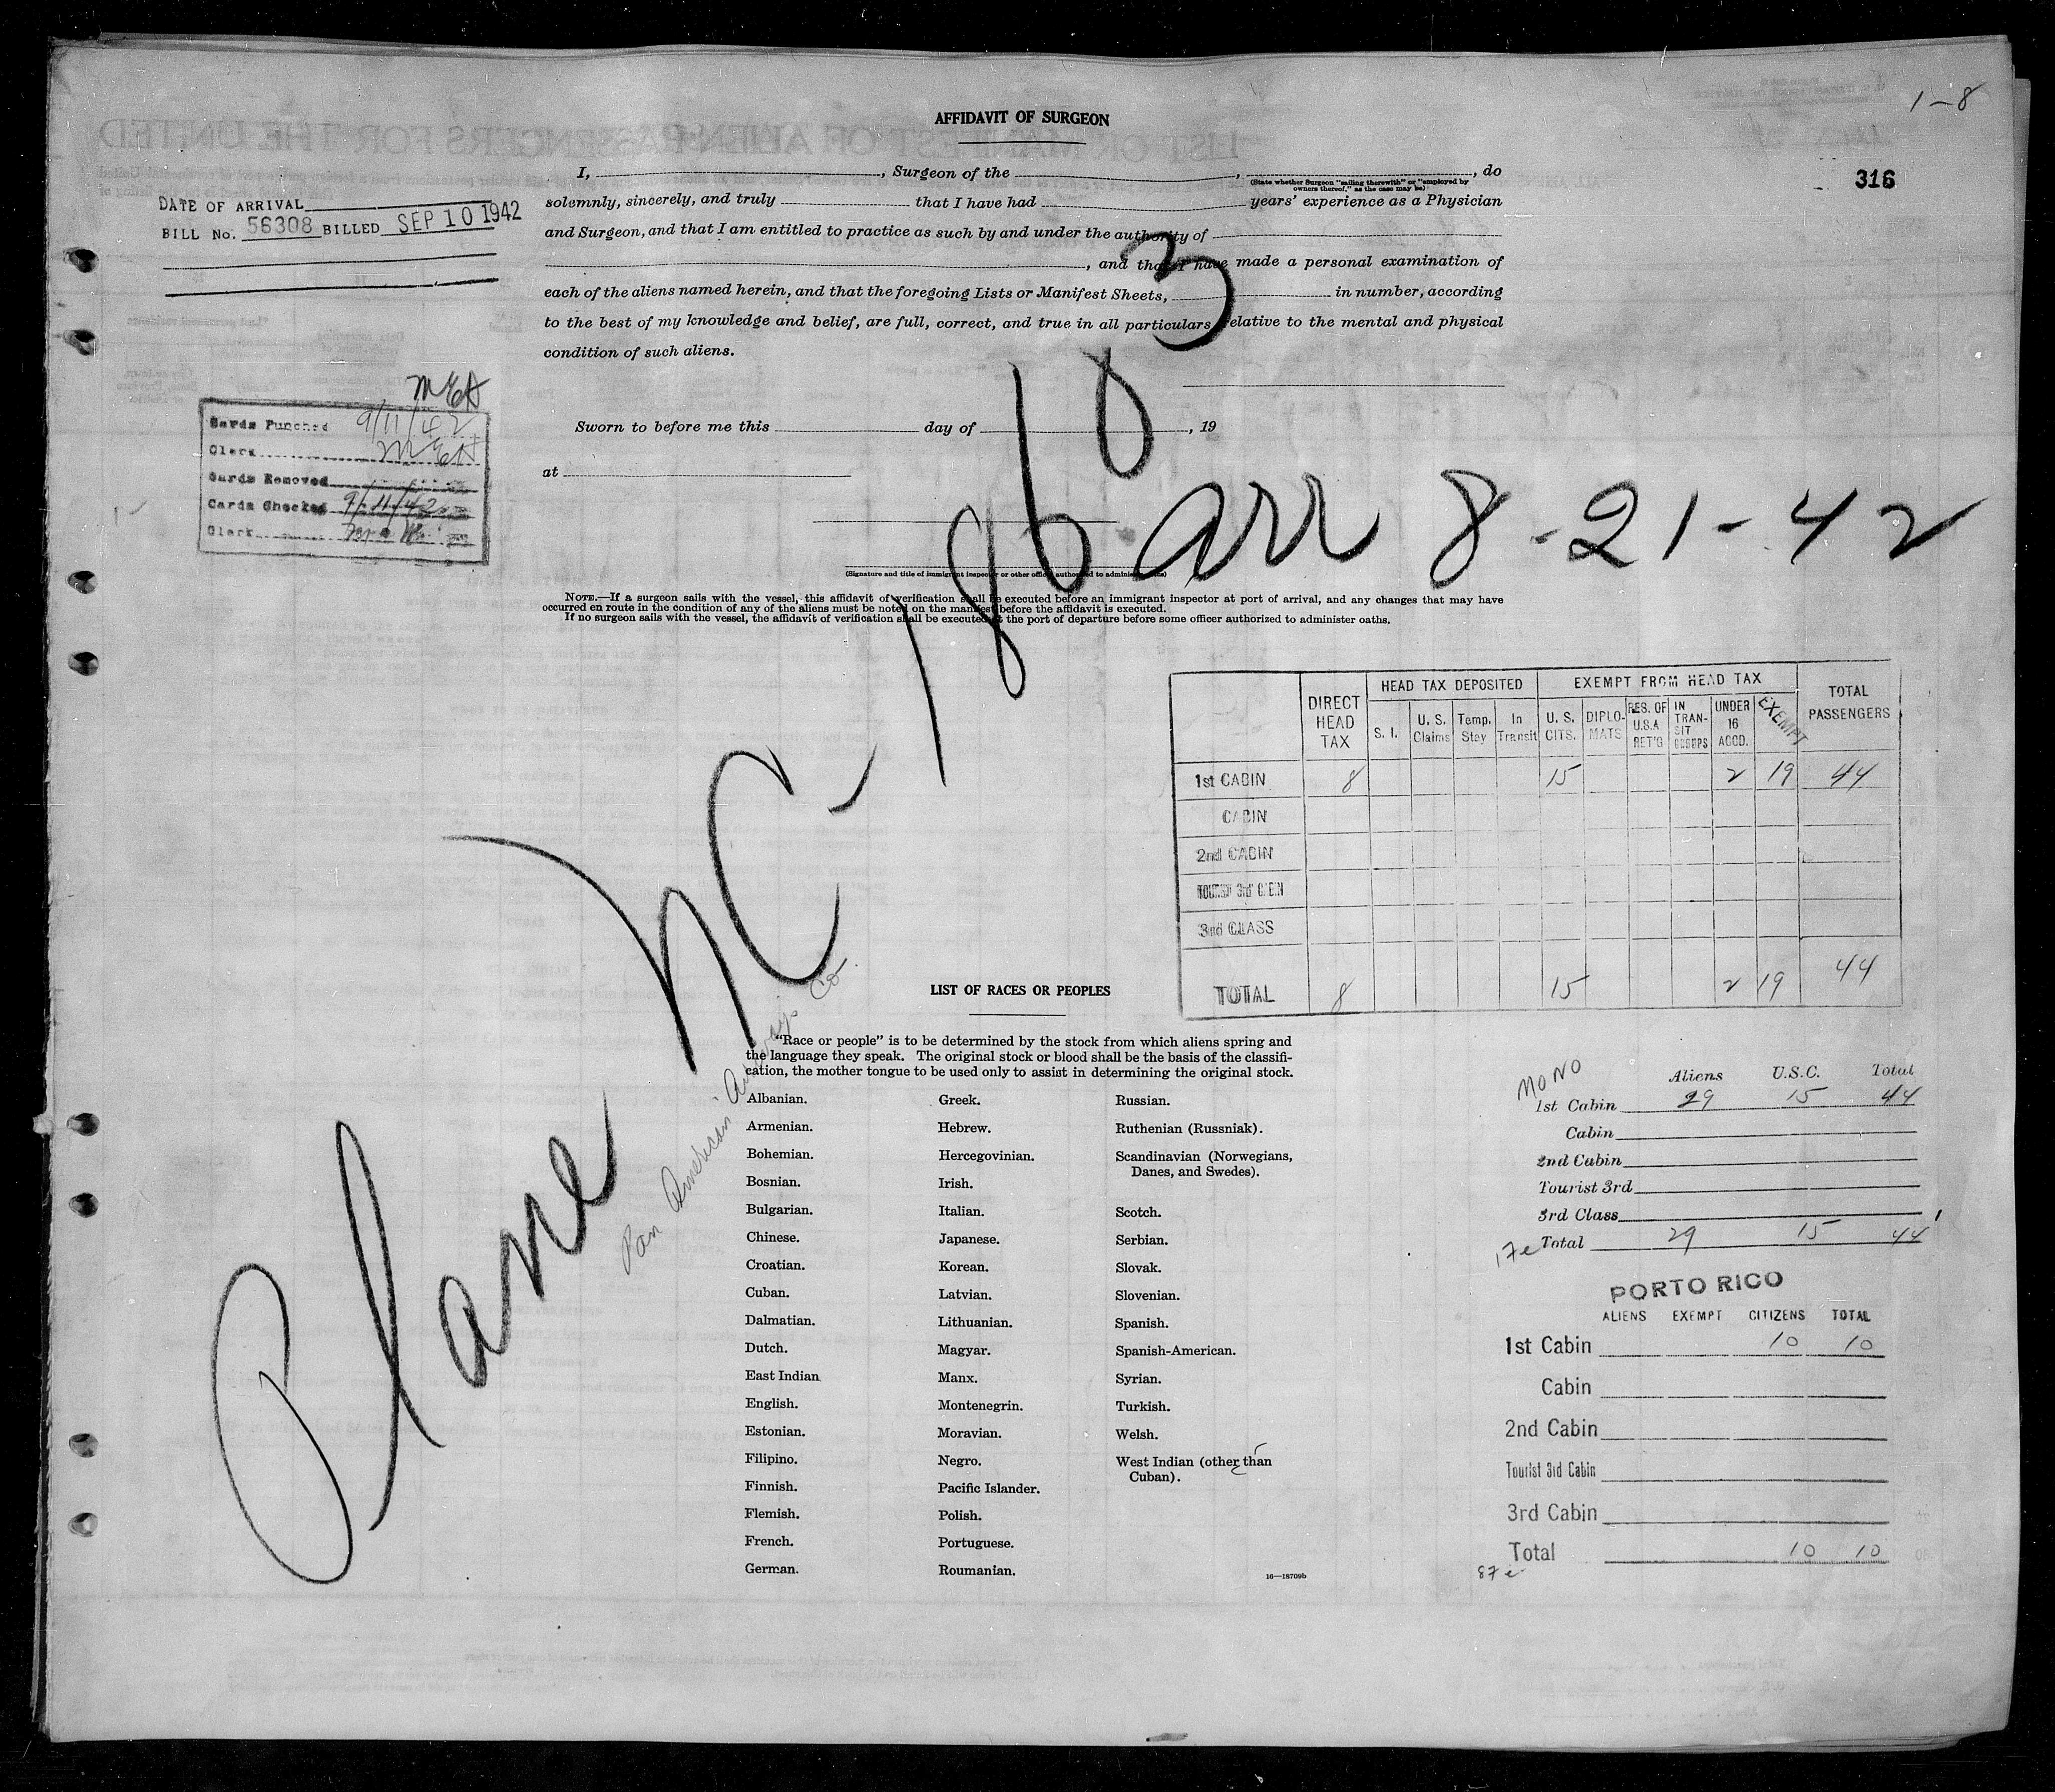 1-8
316
AFFIDAVIT OF SURGEON
I, , Surgeon of the , , do
(State whether Surgeon "sailing therewith" or "employed by owners thereof," as the case may be)
solemnly, sincerely, and truly that I have had years' experience as a Physician
and Surgeon, and that I am entitled to practice as such by and under the authority of
, and that I have made a personal examination of
each of the aliens named herein, and that the foregoing Lists or Manifest Sheets, in number, according
to the best of my knowledge and belief, are full, correct, and true in all particulars relative to the mental and physical
condition of such aliens.
Sworn to before me this day of , 19
at
(Signature and title of immigrant inspector or other officer authorized to administer oaths)
NOTE.—If a surgeon sails with the vessel, this affidavit of verification shall be executed before an immigrant inspector at port of arrival, and any changes that may have
occurred en route in the condition of any of the aliens must be noted on the manifest before the affidavit is executed.
If no surgeon sails with the vessel, the affidavit of verification shall be executed at the port of departure before some officer authorized to administer oaths.
DATE OF ARRIVAL
BILL No. 56308 BILLED SEP 10 1942
MEA
Cards Punched 9/11/42
Clerk MEA
Cards Removed
Cards Checked 9/11/42
Clerk
Plane NC-18603
arr 8-21-42
Pan American Airways Co.
DIRECT HEAD TAX
HEAD TAX DEPOSITED
EXEMPT FROM HEAD TAX
TOTAL PASSENGERS
S. I. U. S. Claims Temp. Stay In Transit U. S. CITS. DIPLOMATS RES. OF U.S.A. RET'G IN TRANSIT GROUPS UNDER 16 ACCD. EXEMPT
1st CABIN 8 15 2 19 44
CABIN
2nd CABIN
TOURIST 3rd CABIN
3nd CLASS
TOTAL 8 15 2 19 44
LIST OF RACES OR PEOPLES
"Race or people" is to be determined by the stock from which aliens spring and
the language they speak. The original stock or blood shall be the basis of the classifi-
cation, the mother tongue to be used only to assist in determining the original stock.
Albanian.
Armenian.
Bohemian.
Bosnian.
Bulgarian.
Chinese.
Croatian.
Cuban.
Dalmatian.
Dutch.
East Indian
English.
Estonian.
Filipino.
Finnish.
Flemish.
French.
German.
Greek.
Hebrew.
Hercegovinian.
Irish.
Italian.
Japanese.
Korean.
Latvian.
Lithuanian.
Magyar.
Manx.
Montenegrin.
Moravian.
Negro.
Pacific Islander.
Polish.
Portuguese.
Roumanian.
Russian.
Ruthenian (Russniak).
Scandinavian (Norwegians,
Danes, and Swedes).
Scotch.
Serbian.
Slovak.
Slovenian.
Spanish.
Spanish-American.
Syrian.
Turkish.
Welsh.
West Indian (other than
Cuban).
16—18709b
MONO
Aliens U.S.C. Total
1st Cabin 29 15 44
Cabin
2nd Cabin
Tourist 3rd
3rd Class
17e Total 29 15 44
PORTO RICO
ALIENS EXEMPT CITIZENS TOTAL
1st Cabin 10 10
Cabin
2nd Cabin
Tourist 3rd Cabin
3rd Cabin
Total 10 10
87e